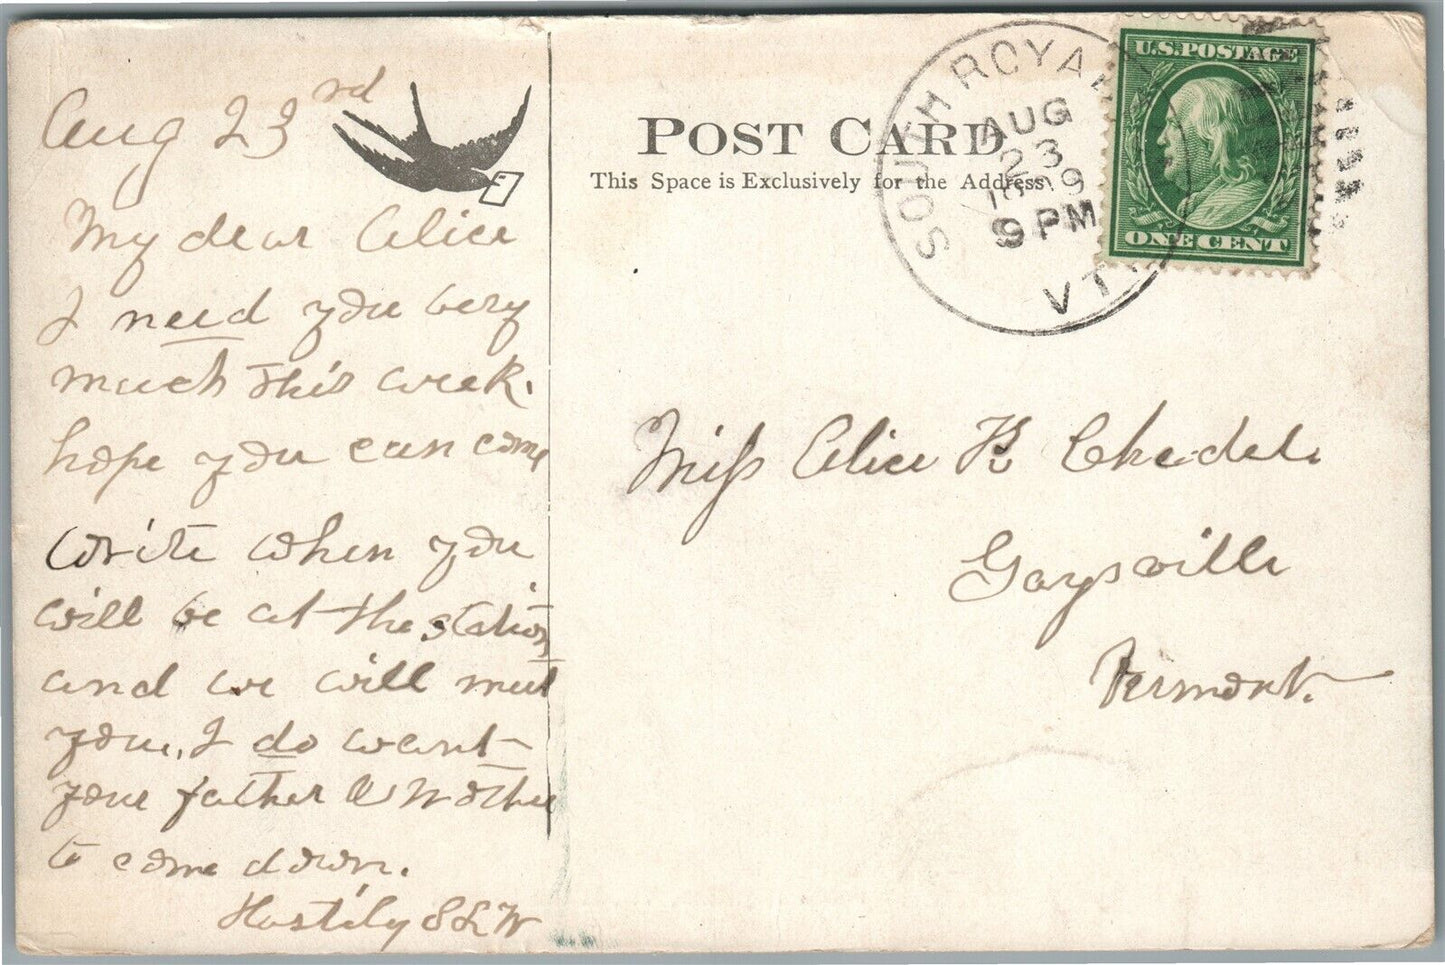 Aug 23rd
My dear Alice
I need you very
much this week.
hope you can come
write when you
will be at the station
and we will meet
you, I do want
your father & Mother
to come down.
Hastily S L W
POST CARD
This Space is Exclusively for the Address
SOUTH ROYAL
AUG
23
1909
9 PM
VT.
U.S. POSTAGE
ONE CENT
Miss Alice K Chedel.
Gaysville
Vermont.